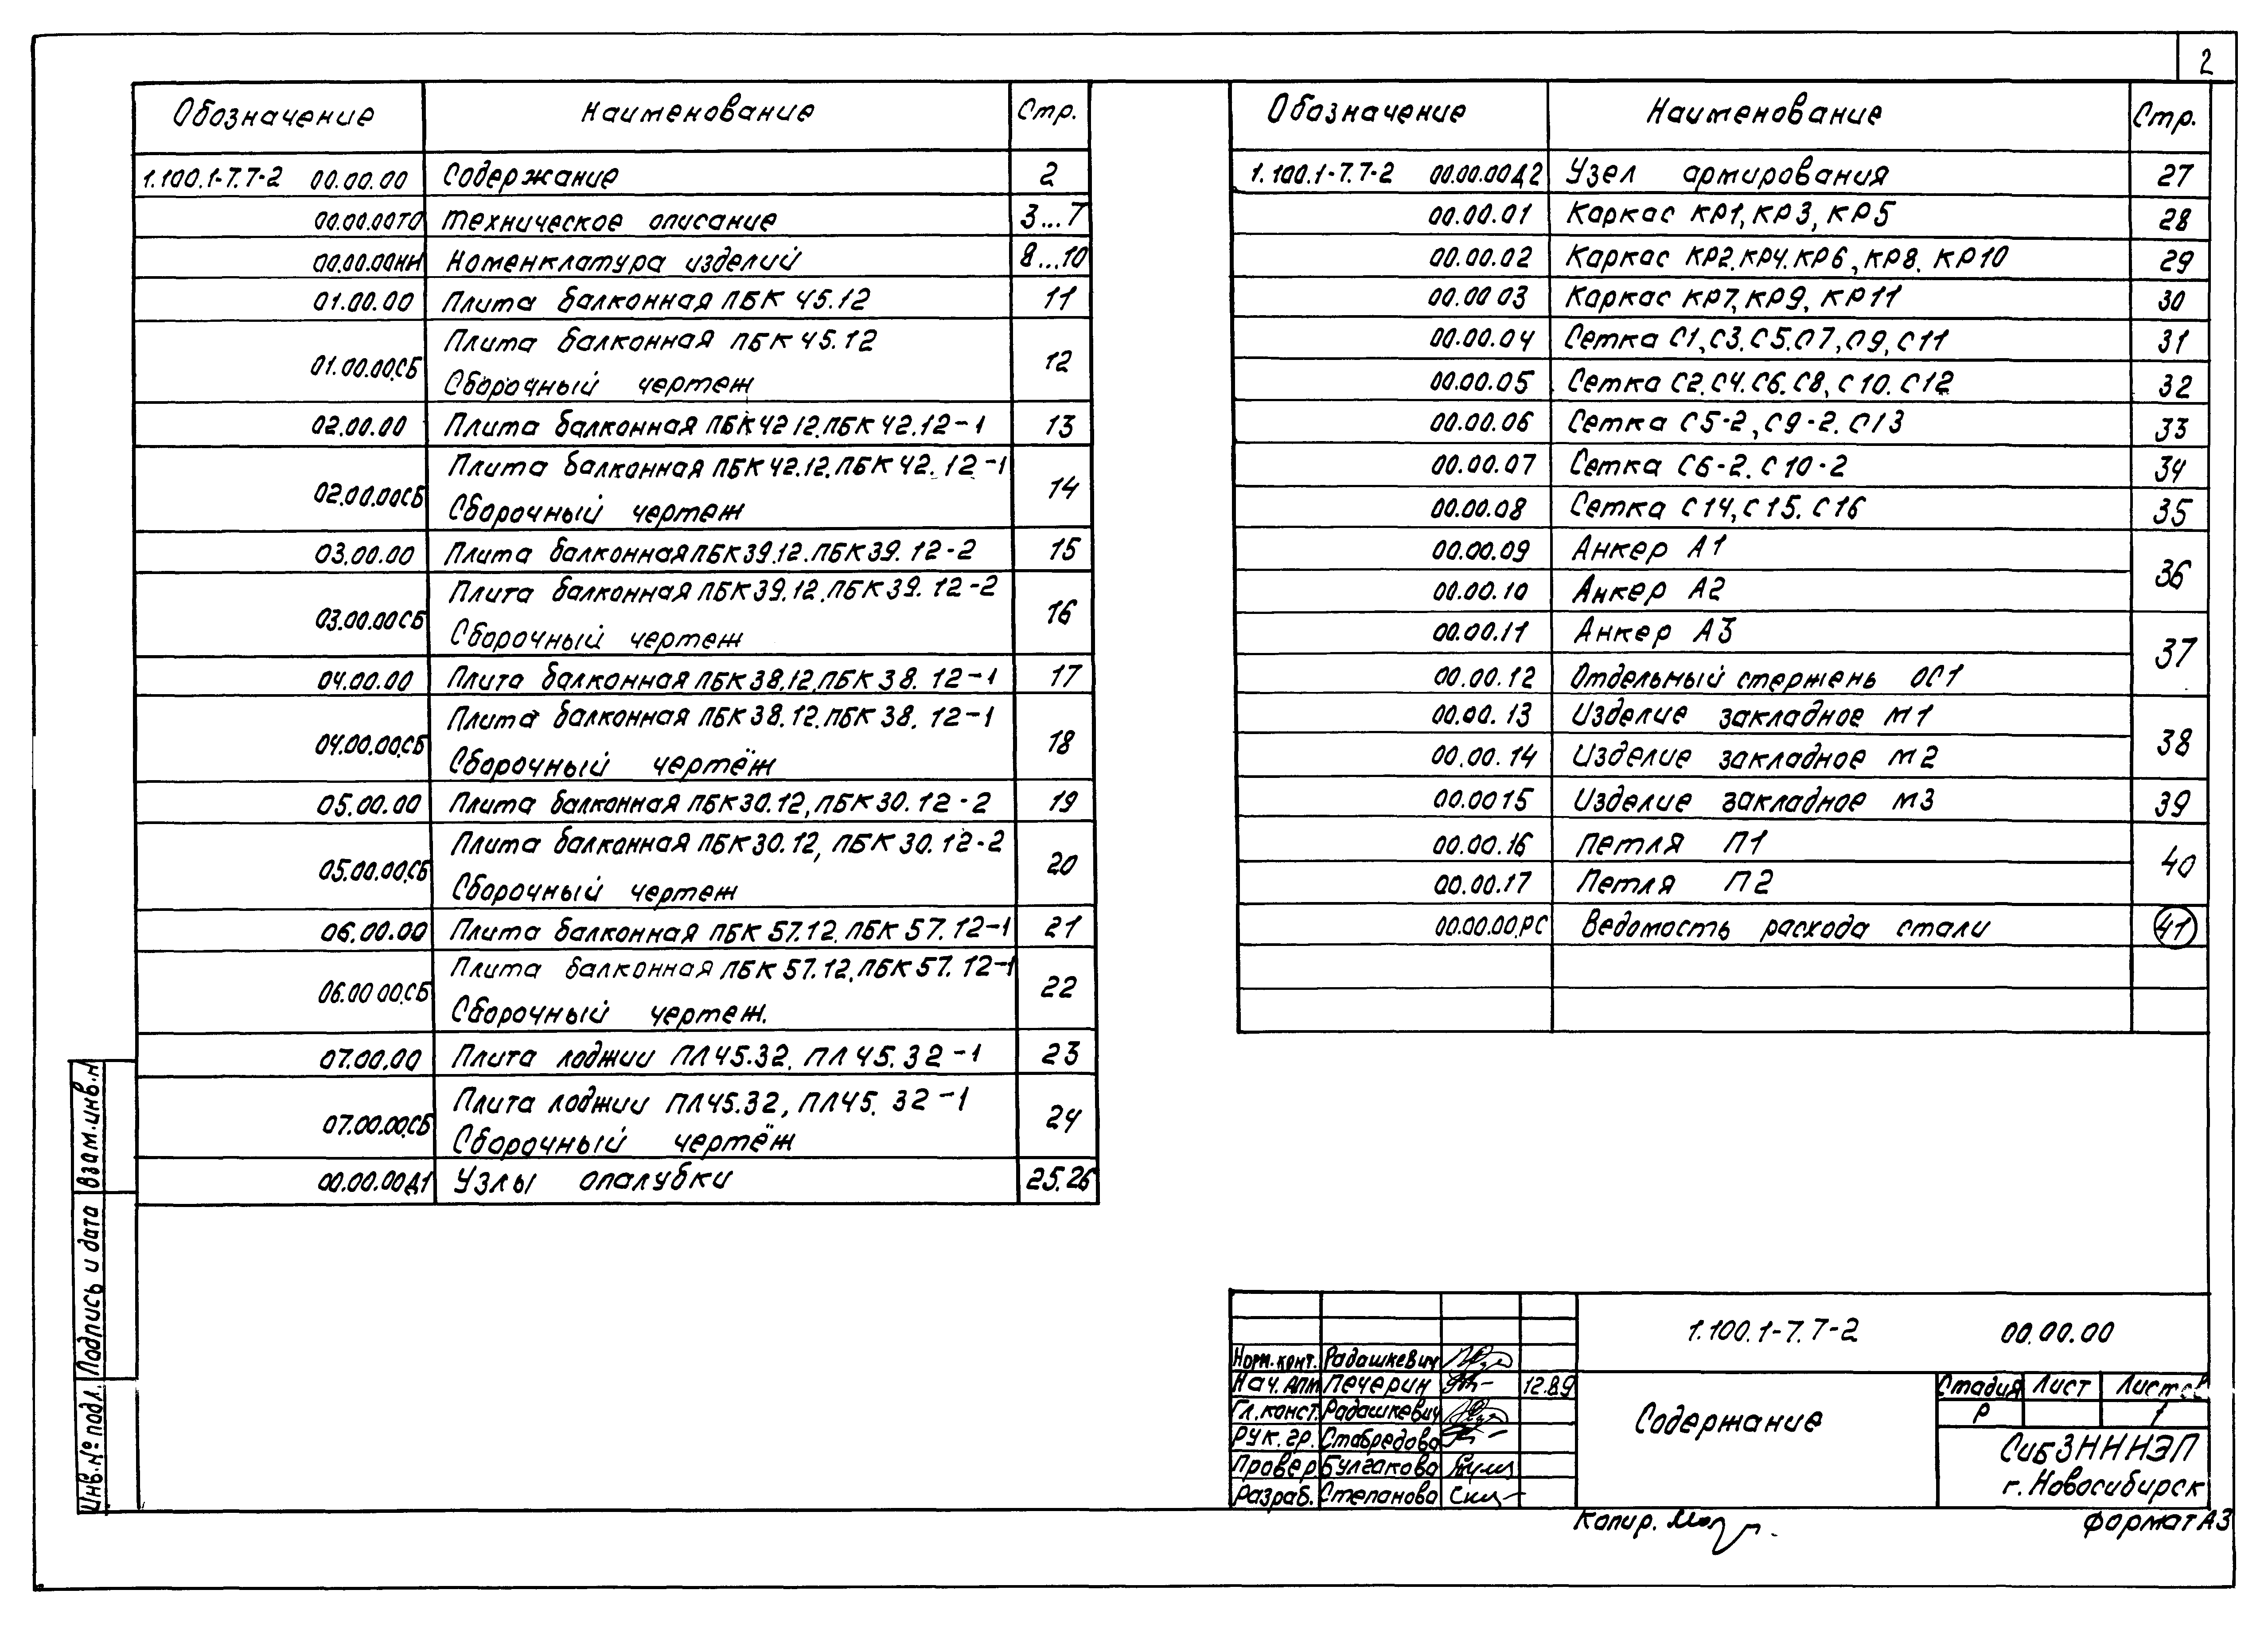 2
Обозначение Наименование Стр.
1.100.1-7.7-2 00.00.00 Содержание 2
00.00.00ТО Техническое описание 3...7
00.00.00НИ Номенклатура изделий 8...10
01.00.00 Плита балконная ПБК 45.12 11
01.00.00.СБ Плита балконная ПБК 45.12
Сборочный чертеж 12
02.00.00 Плита балконная ПБК 42 12. ПБК 42.12-1 13
02.00.00СБ Плита балконная ПБК 42.12. ПБК 42.12-1
Сборочный чертеж 14
03.00.00 Плита балконная ПБК 39.12. ПБК 39.12-2 15
03.00.00СБ Плита балконная ПБК 39.12. ПБК 39.12-2
Сборочный чертеж 16
04.00.00 Плита балконная ПБК 38.12, ПБК 38.12-1 17
04.00.00.СБ Плита балконная ПБК 38.12. ПБК 38.12-1
Сборочный чертёж 18
05.00.00 Плита балконная ПБК 30.12, ПБК 30.12-2 19
05.00.00.СБ Плита балконная ПБК 30.12, ПБК 30.12-2
Сборочный чертеж 20
06.00.00 Плита балконная ПБК 57.12. ПБК 57.12-1 21
06.00 00.СБ Плита балконная ПБК 57.12, ПБК 57.12-1
Сборочный чертеж. 22
07.00.00 Плита лоджии ПЛ 45.32. ПЛ 45.32-1 23
07.00.00.СБ Плита лоджии ПЛ45.32, ПЛ45.32-1
Сборочный чертёж 24
00.00.00Д1 Узлы опалубки 25.26
Обозначение Наименование Стр.
1.100.1-7.7-2 00.00.00Д2 Узел армирования 27
00.00.01 Каркас КР1, КР3, КР5 28
00.00.02 Каркас КР2. КР4. КР6, КР8. КР10 29
00.00 03 Каркас КР7, КР9, КР11 30
00.00.04 Сетка С1, С3. С5. С7, С9, С11 31
00.00.05 Сетка С2. С4. С6. С8, С10. С12 32
00.00.06 Сетка С5-2, С9-2. С13 33
00.00.07 Сетка С6-2. С10-2 34
00.00.08 Сетка С14, С15. С16 35
00.00.09 Анкер А1 36
00.00.10 Анкер А2
00.00.11 Анкер А3 37
00.00.12 Отдельный стержень ОС1
00.00.13 Изделие закладное М1 38
00.00.14 Изделие закладное М2
00.0015 Изделие закладное М3 39
00.00.16 Петля П1 40
00.00.17 Петля П2
00.00.00.РС Ведомость расхода стали 41
Взам.инв.н
Подпись и дата
Инв.№ подл.
1.100.1-7.7-2 00.00.00
Норм.конт. Радашкевич
Нач. АПМ Печерин 12.89
Гл.конст. Радашкевич
Рук. гр. Стабредова
Провер Булгакова
Разраб. Степанова
Содержание
Стадия Лист Листов
Р 1
СибЗНИИЭП
г. Новосибирск
Копир.
Формат А3